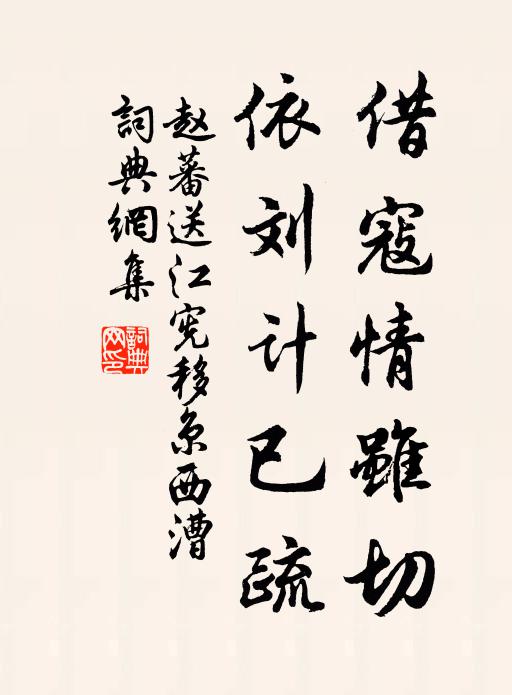 借寇情雖切
依刘计已疏
赵蕃送江宪移京西漕
詞典網集
詞典网印